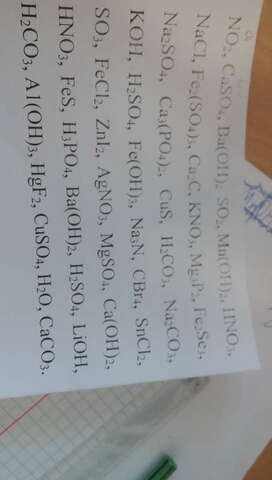 NO₂, CaSO₄, Ba(OH)₂, SO₂, Mn(OH)₂, HNO₃,
NaCl, Fe₂(SO₄)₃, Ca₂C, KNO₃, Mg₃P₂, Fe₂Se₃,
Na₂SO₄, Ca₃(PO₄)₂, CuS, H₂CO₃, Na₂CO₃,
KOH, H₂SO₄, Fe(OH)₃, Na₃N, CBr₄, SnCl₂,
SO₃, FeCl₂, ZnI₂, AgNO₃, MgSO₄, Ca(OH)₂,
HNO₃, FeS, H₃PO₄, Ba(OH)₂, H₂SO₄, LiOH,
H₂CO₃, Al(OH)₃, HgF₂, CuSO₄, H₂O, CaCO₃.